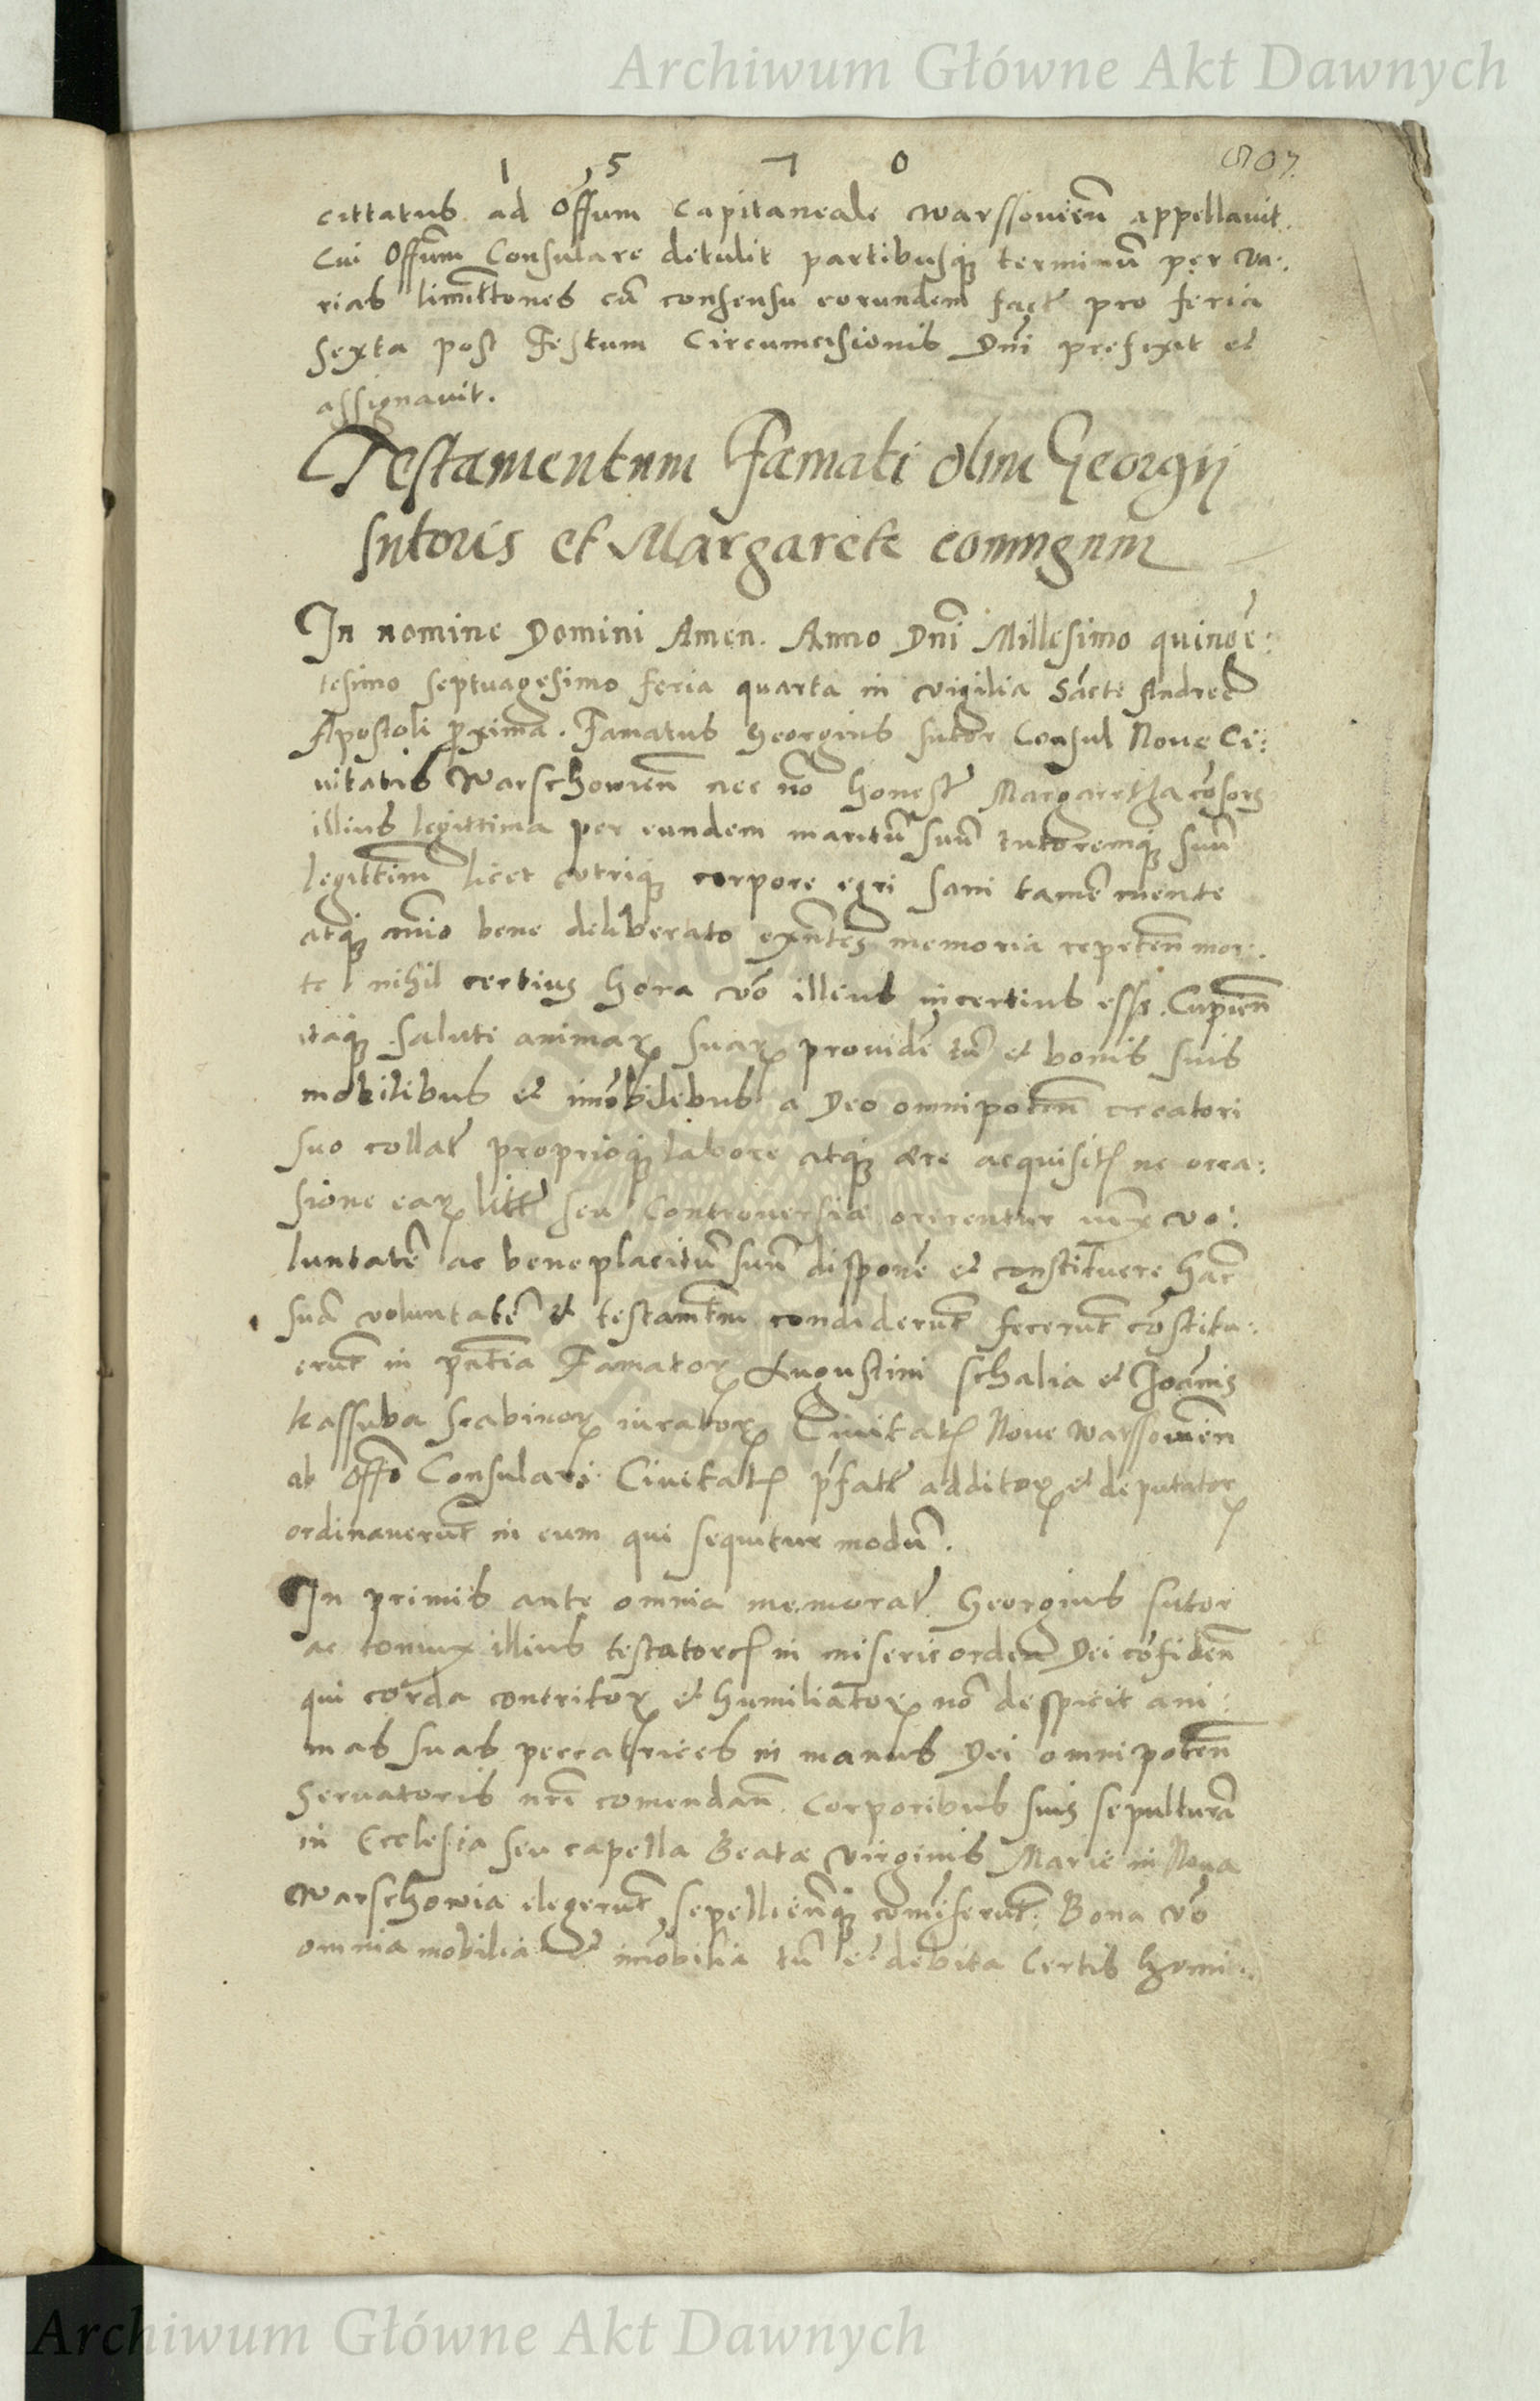 Archiwum Główne Akt Dawnych
1 5 7 0
cittatus ad Offum Capitaneale Warssovien appellavit.
Cui Offum Consulare detulit partibusq terminu per va:
rias limittones cu consensu eorundem fact pro feria
sexta post Festum Circumcisionis Dni prefixit et
assignavit.
Testamentum Famati olim Georgij
sutoris et Margarete coniugum
In nomine Domini Amen. Anno Dni Millesimo quinge:
tesimo septuagesimo feria quarta in vigilia Sacte Andree
Apostoli proxima. Famatus Georgius sutor Consul Nove Ci:
vitatis Warschowien nec no honest Margaretha cosors
illius legittima per eundem maritu suu tutoremq suu
legittim licet utriq corpore egri sani tame mente
atq aio bene deliberato exntes memoria repeten mor:
te nihil certius hora vo illius incertius esse. Cupien
itaq saluti animar suar providi tu et bonis suis
mobilibus et imobilibus a Deo omnipoten creatori
suo collat proprioq labore atq ære acquisit ne occa:
sione ear litt seu Controversiæ orirentur iux vo:
luntate ac beneplacitu suu dispone et constituere hac
sua voluntate et testamtm condiderut fecerut costitu:
erut in pntia Famator Augustini Schalia et Joanis
Kassuba scabinor iurator Civitat Nove Warssovien
ab Offo Consulari Civitat pfate additor et deputator
ordinaverut in eum qui sequitur modu.
In primis ante omnia memorat Georgius sutor
ac coniux illius testatores in misericordia Dei cofiden
qui corda contritor et humiliator no despicit ani:
mas suas peccatrices in manus Dei omnipoten
Servatoris nri comendan. Corporibus suis sepultura
in Ecclesia seu capella Beatæ Virginis Marie in Nova
Warschovia elegerut, sepellienq comiserut. Bona vo
omnia mobilia et imobilia tu et debita Certis homi:
Archiwum Główne Akt Dawnych